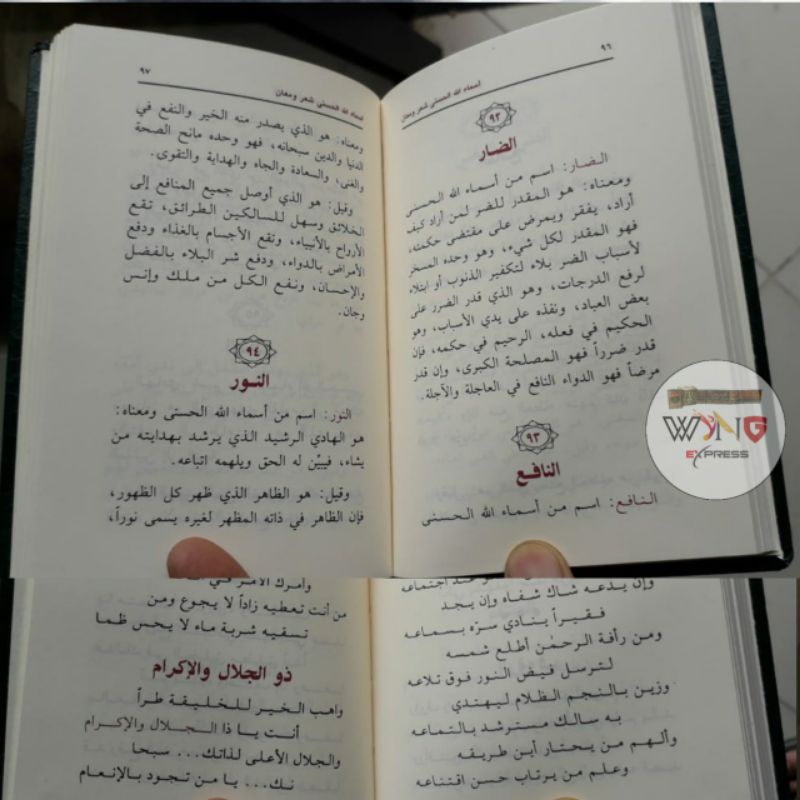 ٩٦
أسماء الله الحسنى شعر ومعان
٩٢
الضار
الضار: اسم من أسماء الله الحسنى
ومعناه: هو المقدر للضر لمن أراد كيف
أراد، يفقر ويمرض على مقتضى حكمته،
فهو المقدر لكل شيء، وهو وحده المسخر
لأسباب الضر بلاء لتكفير الذنوب أو ابتلاء
لرفع الدرجات، وهو الذي قدر الضرر على
بعض العباد، ونفذه على يدي الأسباب، وهو
الحكيم في فعله، الرحيم في حكمه، فإن
قدر ضرراً فهو المصلحة الكبرى، وإن قدر
مرضاً فهو الدواء النافع في العاجلة والآجلة.
٩٣
النافع
النافع: اسم من أسماء الله الحسنى
٩٧
أسماء الله الحسنى شعر ومعان
ومعناه: هو الذي يصدر منه الخير والنفع في
الدنيا والدين سبحانه، فهو وحده مانح الصحة
والغنى، والسعادة والجاه والهداية والتقوى.
وقيل: هو الذي أوصل جميع المنافع إلى
الخلائق وسهل للسالكين الطرائق، تقع
الأرواح بالأنبياء، وتقع الأجسام بالغذاء ودفع
الأمراض بالدواء، ودفع شر البلاء بالفضل
والإحسان، ونفع الكل من ملك وإنس
وجان.
٩٤
النور
النور: اسم من أسماء الله الحسنى ومعناه:
هو الهادي الرشيد الذي يرشد بهدايته من
يشاء، فيبيّن له الحق ويلهمه اتباعه.
وقيل: هو الظاهر الذي ظهر كل الظهور،
فإن الظاهر في ذاته المظهر لغيره يسمى نوراً،
WYNG
EXPRESS
عند اجتماعه
وإن يدعه شاك شفاه وإن يجد
فقيراً ينادي سرّه بسماعه
ومن رأفة الرحمن أطلع شمسه
لترسل فيض النور فوق تلاعه
وزين بالنجم الظلام ليهتدي
به سالك مسترشد بالتماعه
وألهم من يحتار أين طريقه
وعلم من يرتاب حسن اقتناعه
وأمرك الأمر في
من أنت تعطيه زاداً لا يجوع ومن
تسقيه شربة ماء لا يحس ظما
ذو الجلال والإكرام
واهب الخير للخليقة طراً
أنت يا ذا الجلال والإكرام
والجلال الأعلى لذاتك... سبحا
نك... يا من تجود بالإنعام